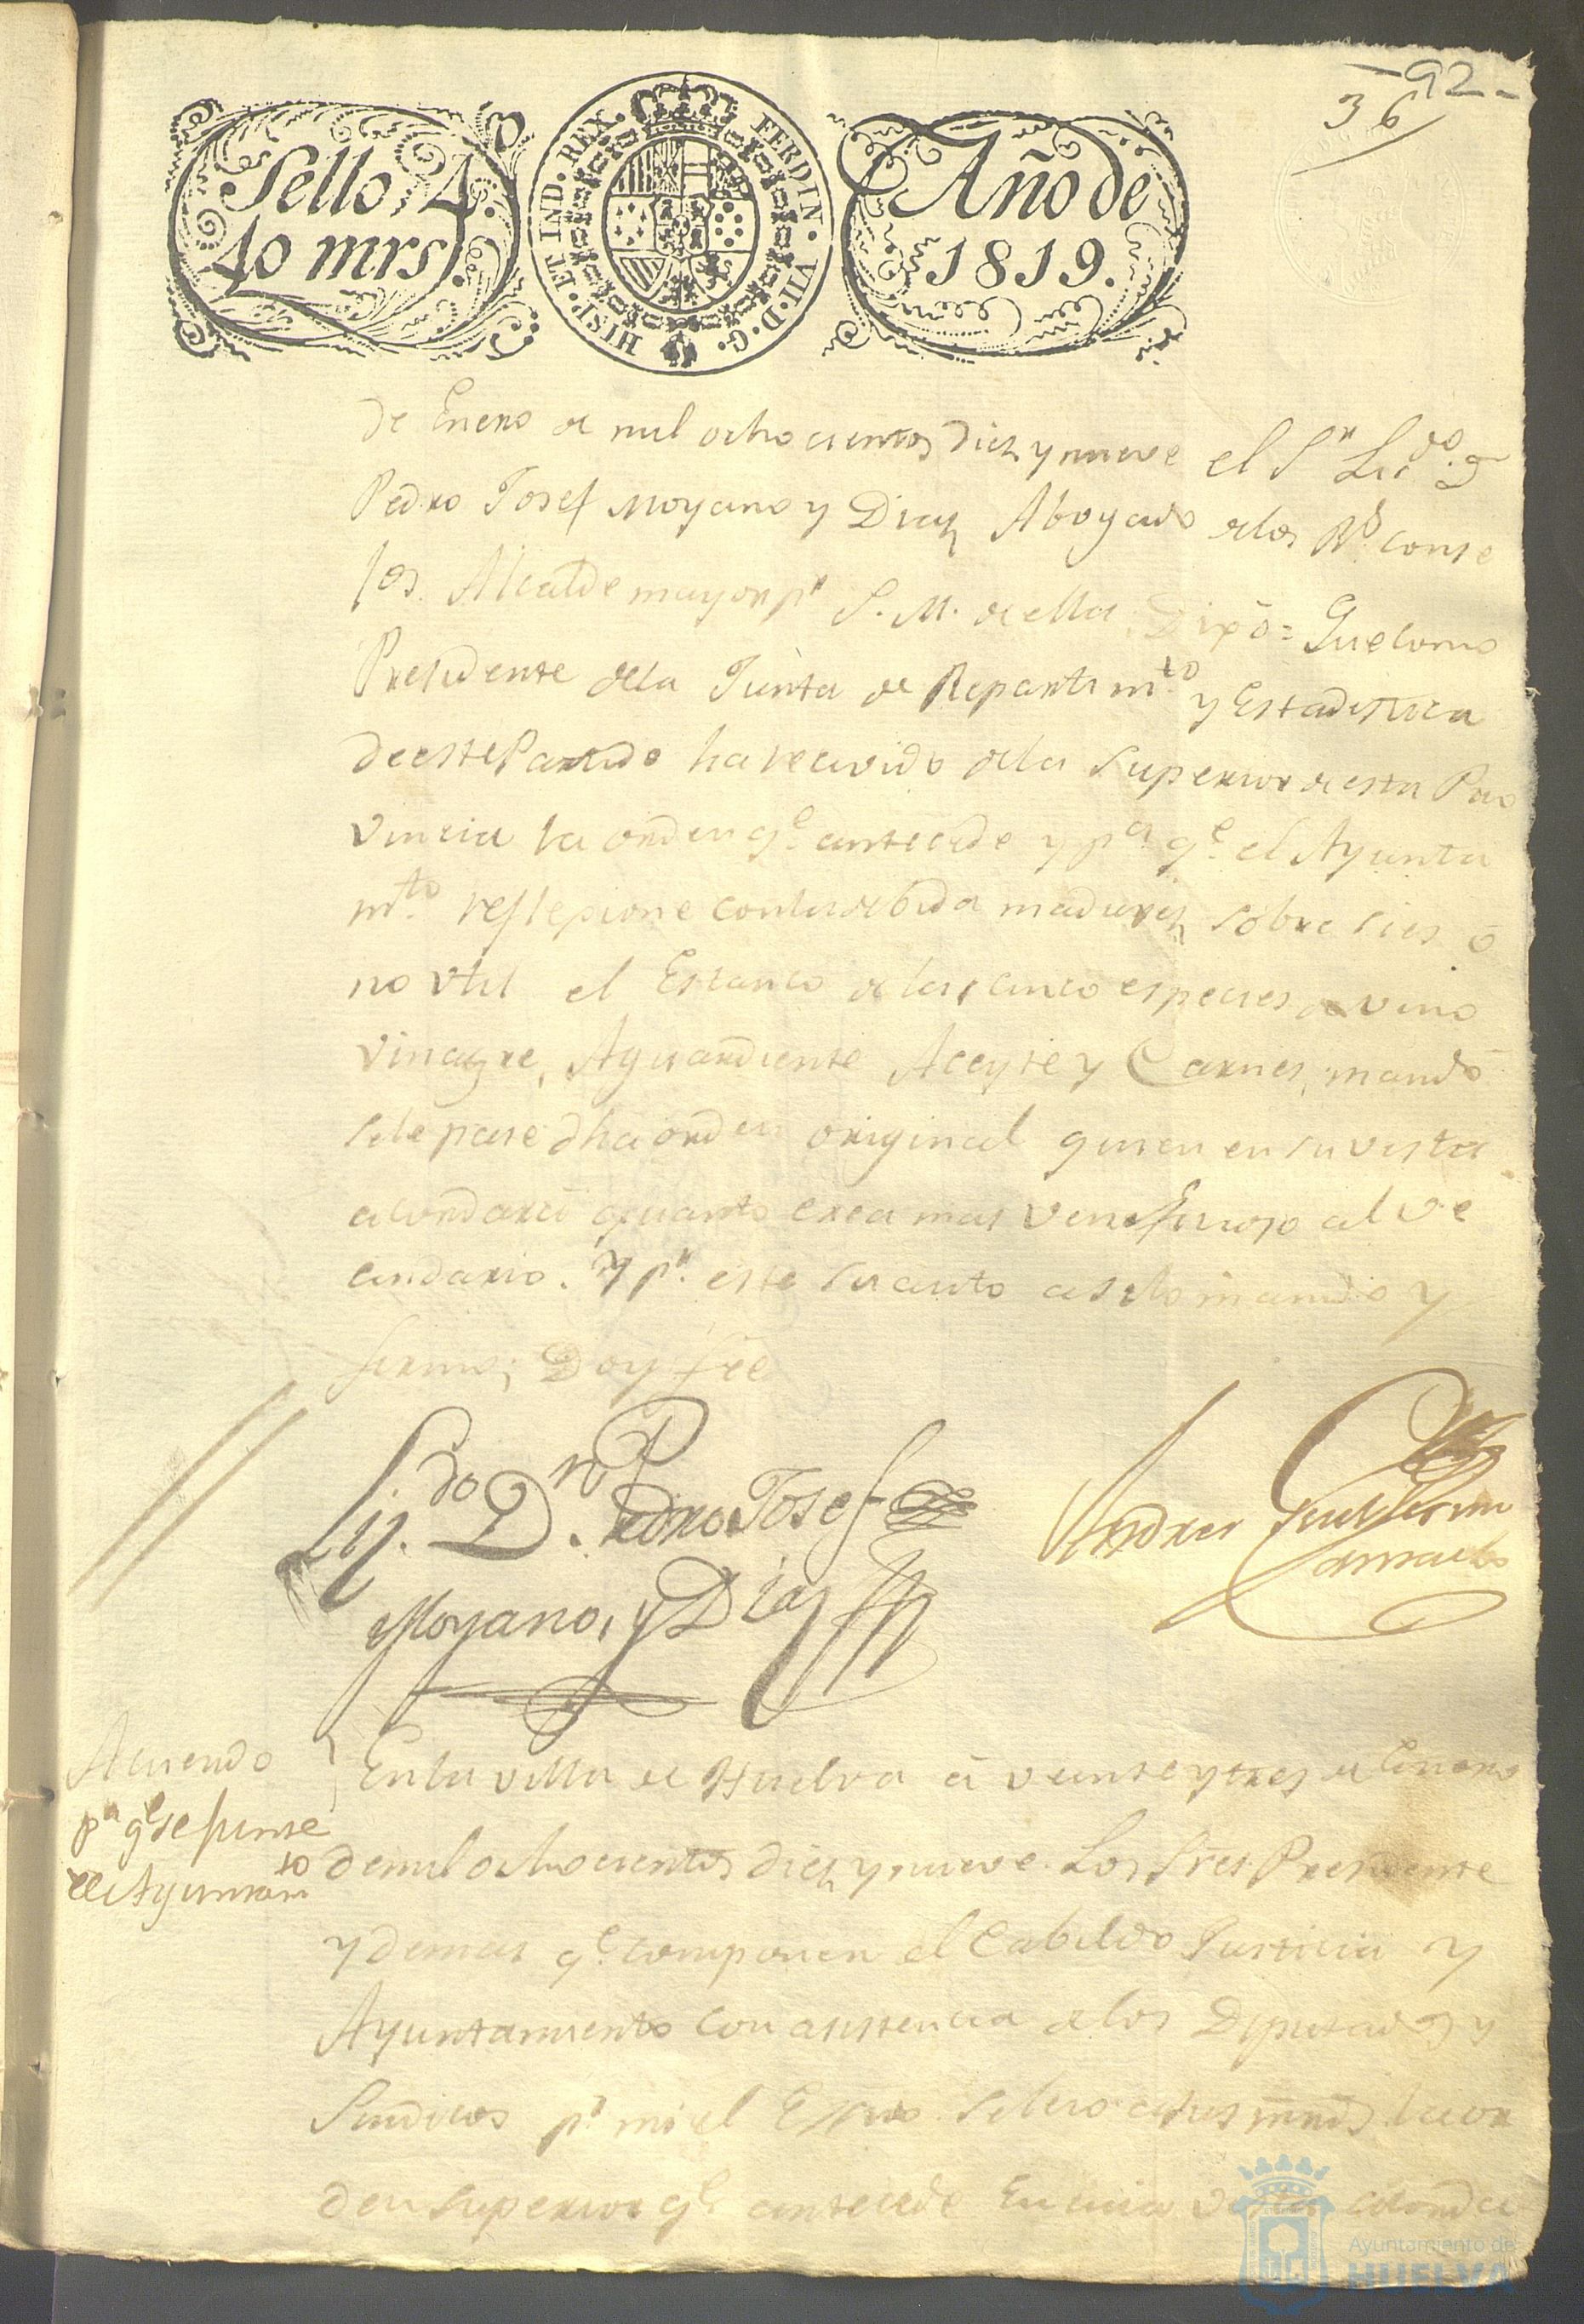 92
36
Sello 4.º
40 mrs.
FERDIN. VII. D. G. HISP. ET IND. REX.
Año de
1819.
de Enero de mil ochocientos diez y nueve el Sr Licdo. Dn
Pedro Josef Moyano y Diaz Abogado de los Rs. conse
jos. Alcalde mayor pr S. M. de ella: Dixo= Que como
Presidente dela Junta de Repartimto. y Estadistica
de este Partido ha recivido dela Superior de esta Pro
vincia la orden qe. antecede y pa. qe. el Ayunta
mto. reflexione con la debida madurez sobre si es ó
no vtil el Estanco de las cinco especies de vino
vinagre, Aguardiente Aceyte y Carnes, mandó
sele pase dha orden original quien en su vista
acordará quanto crea mas veneficioso al ve
cindario. Y pr. este su auto asi lo mando y
firmo; Doy feé
Lizdo. Dn. Pedro Josef
Moyano, y Diaz
Andres Guillermo
Camacho
Acuerdo
pa qe se junte
el Ayuntamto
En la villa de Huelva á veinte y tres de Enero
de mil ochocientos diez y nueve. Los Sres. Presidente
y demas qe. componen el Cabildo Justicia y
Ayuntamiento con asistencia de los Diputados y
Sindicos pr. mi el Essno. se leio a sus mrds. la or
den superior qe antecede En cuia vista acorda
Ayuntamiento de
HUELVA